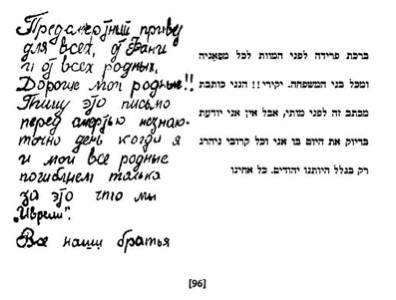 Предсмертний приве
для всех, от Фани
и от всех родных.
Дорогие мои родные!!
Пишу это письмо
перед смертью незнаю.
точно день когда я
и мои все родные
погибнем только
за это что мы
„Иврели".
Все наши братья
ברכת פרידה לפני המוות לכל מפאניה
ומכל בני המשפחה. יקירי!! הנני כותבת
מכתב זה לפני מותי, אבל אין אני יודעת
בדיוק את היום בו אני וכל קרובי ניהרג
רק בגלל היותנו יהודים. כל אחינו
[96]